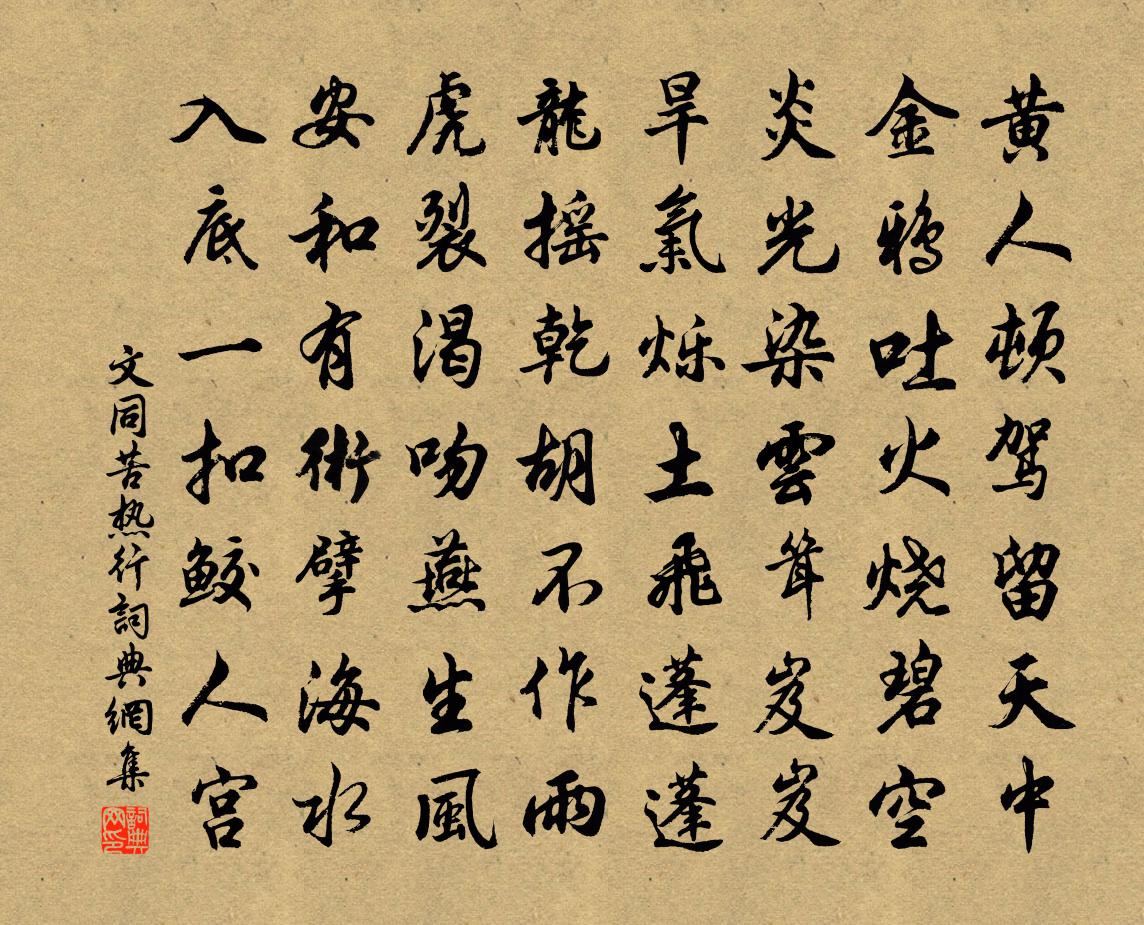 黄人頓駕留天中
金鴉吐火燒碧空
炎光染雲聳岌岌
旱氣爍土飛蓬蓬
龍搖乾胡不作雨
虎裂渴吻燕生風
安和有術擘海水
入底一扣鮫人宮
文同苦热行詞典網集
詞典网印